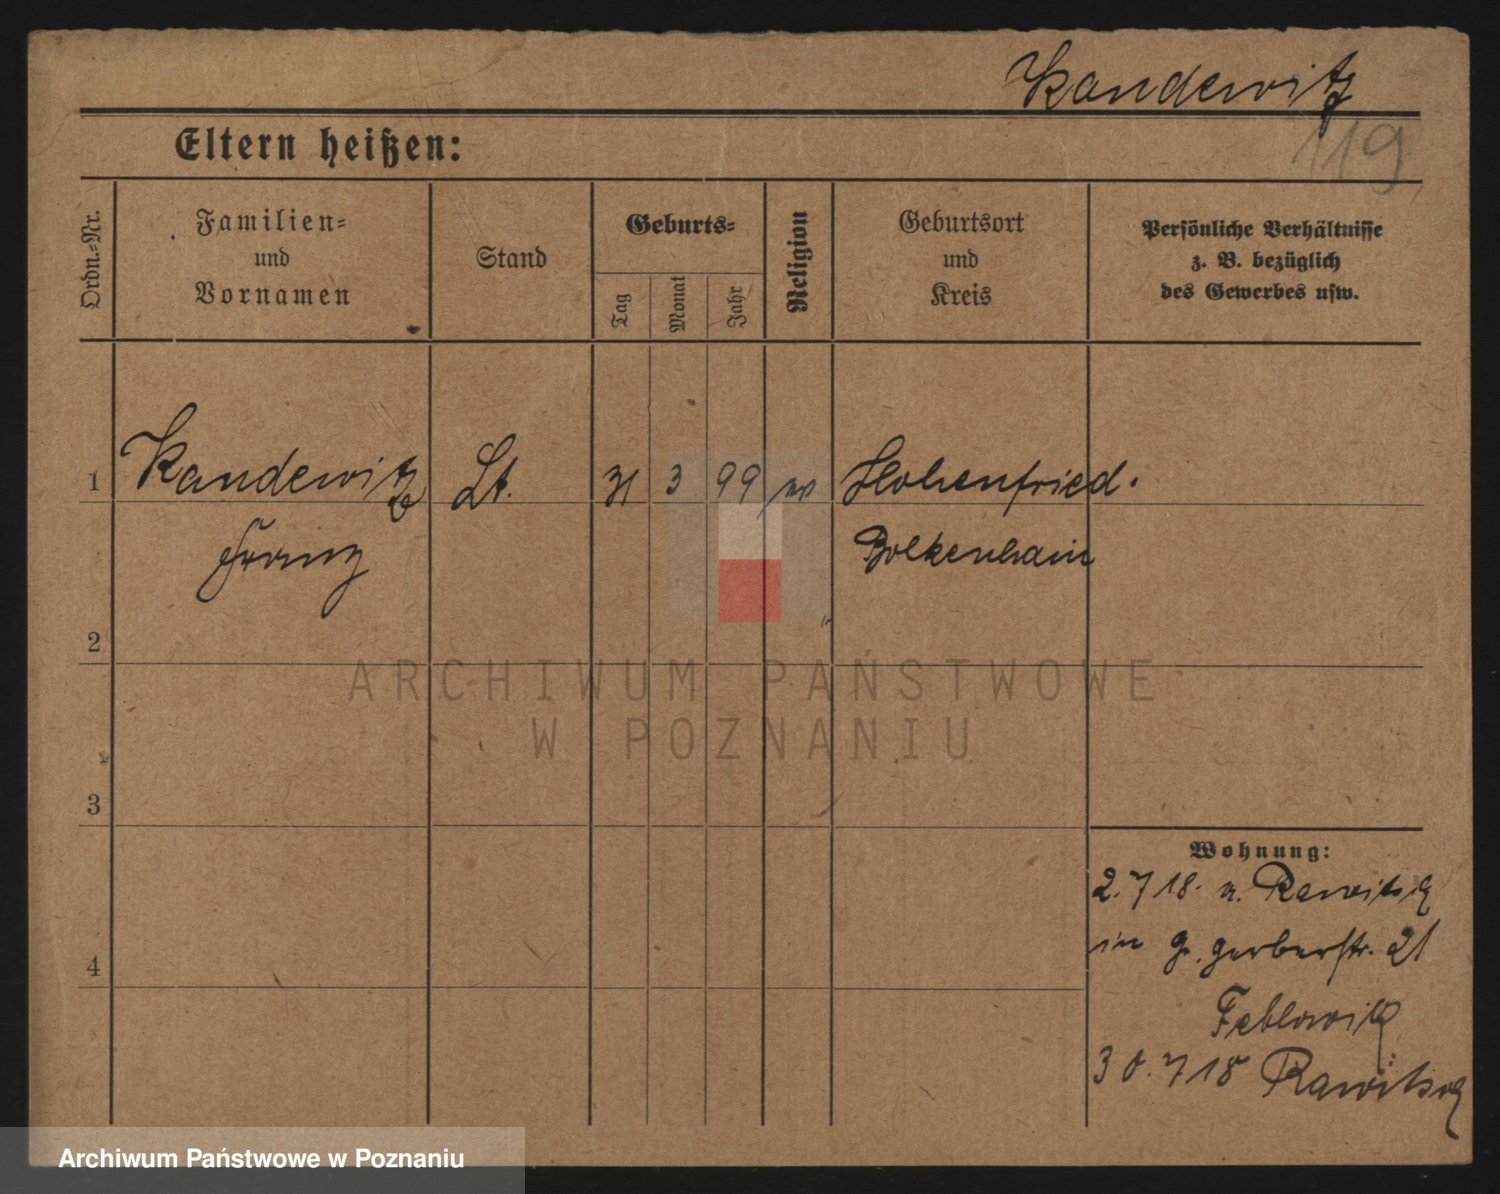 Kandewitz
119
Eltern heißen:
Ordn.-Nr.
Familien-
und
Vornamen
Stand
Geburts-
Tag
Monat
Jahr
Religion
Geburtsort
und
Kreis
Persönliche Verhältnisse
z. B. bezüglich
des Gewerbes usw.
1 Kandewitz Lt. 31 3 99 Hohenfried.
Franz Bolkenhain
2
3
4
Wohnung:
2. 7 18. n. Rawitsch
in gr. gerberstr. 21
30. 7 18 Rawitsch
ARCHIWUM PAŃSTWOWE
W POZNANIU
Archiwum Państwowe w Poznaniu